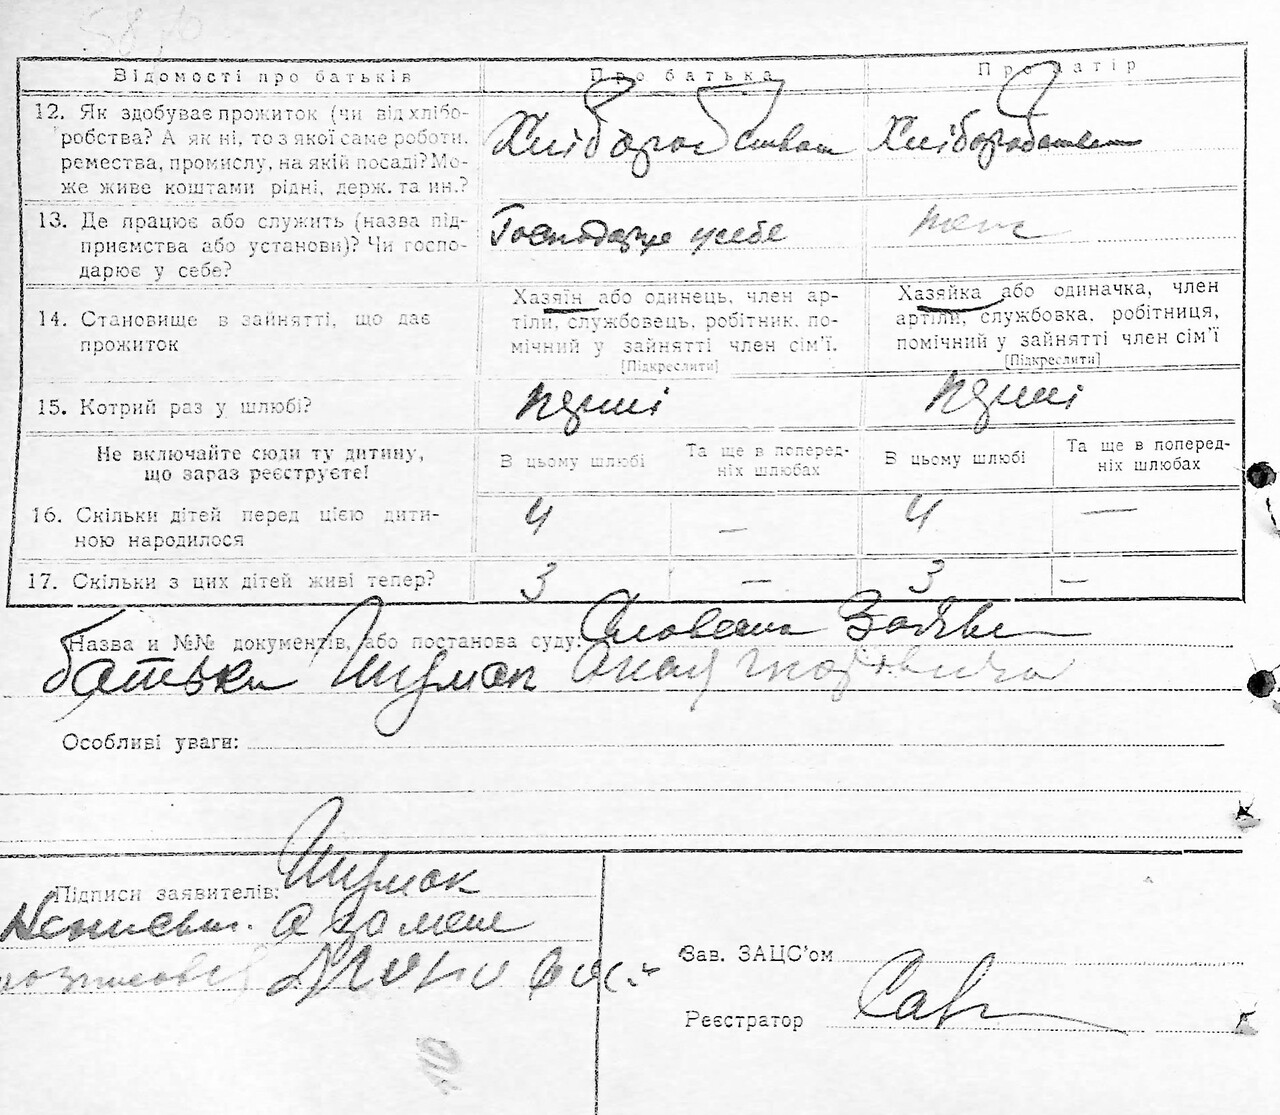 Відомості про батьків Про батька Про матір
12. Як здобуває прожиток (чи від хлібо-
робства? А як ні, то з якої саме роботи,
ремества, промислу, на якій посаді? Мо-
же живе коштами рідні, держ. та ин.?
Хліборобством Хліборобством
13. Де працює або служить (назва під-
приємства або установи)? Чи госпо-
дарює у себе?
Господарює у себе
14. Становище в зайнятті, що дає
прожиток
Хазяїн або одинець, член ар-
тіли, службовець, робітник, по-
мічний у зайнятті член сім'ї.
[Підкреслити]
Хазяйка або одиначка, член
артіли, службовка, робітниця,
помічний у зайнятті член сім'ї
[Підкреслити]
15. Котрий раз у шлюбі? перший перший
Не включайте сюди ту дитину,
що зараз реєструєте!
В цьому шлюбі
Та ще в поперед-
ніх шлюбах
В цьому шлюбі
Та ще в поперед-
ніх шлюбах
16. Скільки дітей перед цією дити-
ною народилося
4 — 4 —
17. Скільки з цих дітей живі тепер? 3 — 3 —
Назва и №№ документів, або постанова суду:
батька Шумак
Особливі уваги:
Підписи заявителів: Шумак
Зав. ЗАЦС'ом
Реєстратор